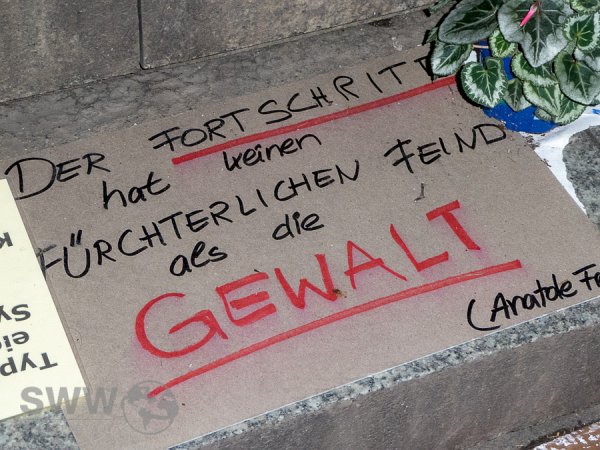 DER FORTSCHRITT
hat keinen
FÜRCHTERLICHEN FEIND
als die
GEWALT
(Anatole Fr
Typ
eic
Sy
K
SWW S